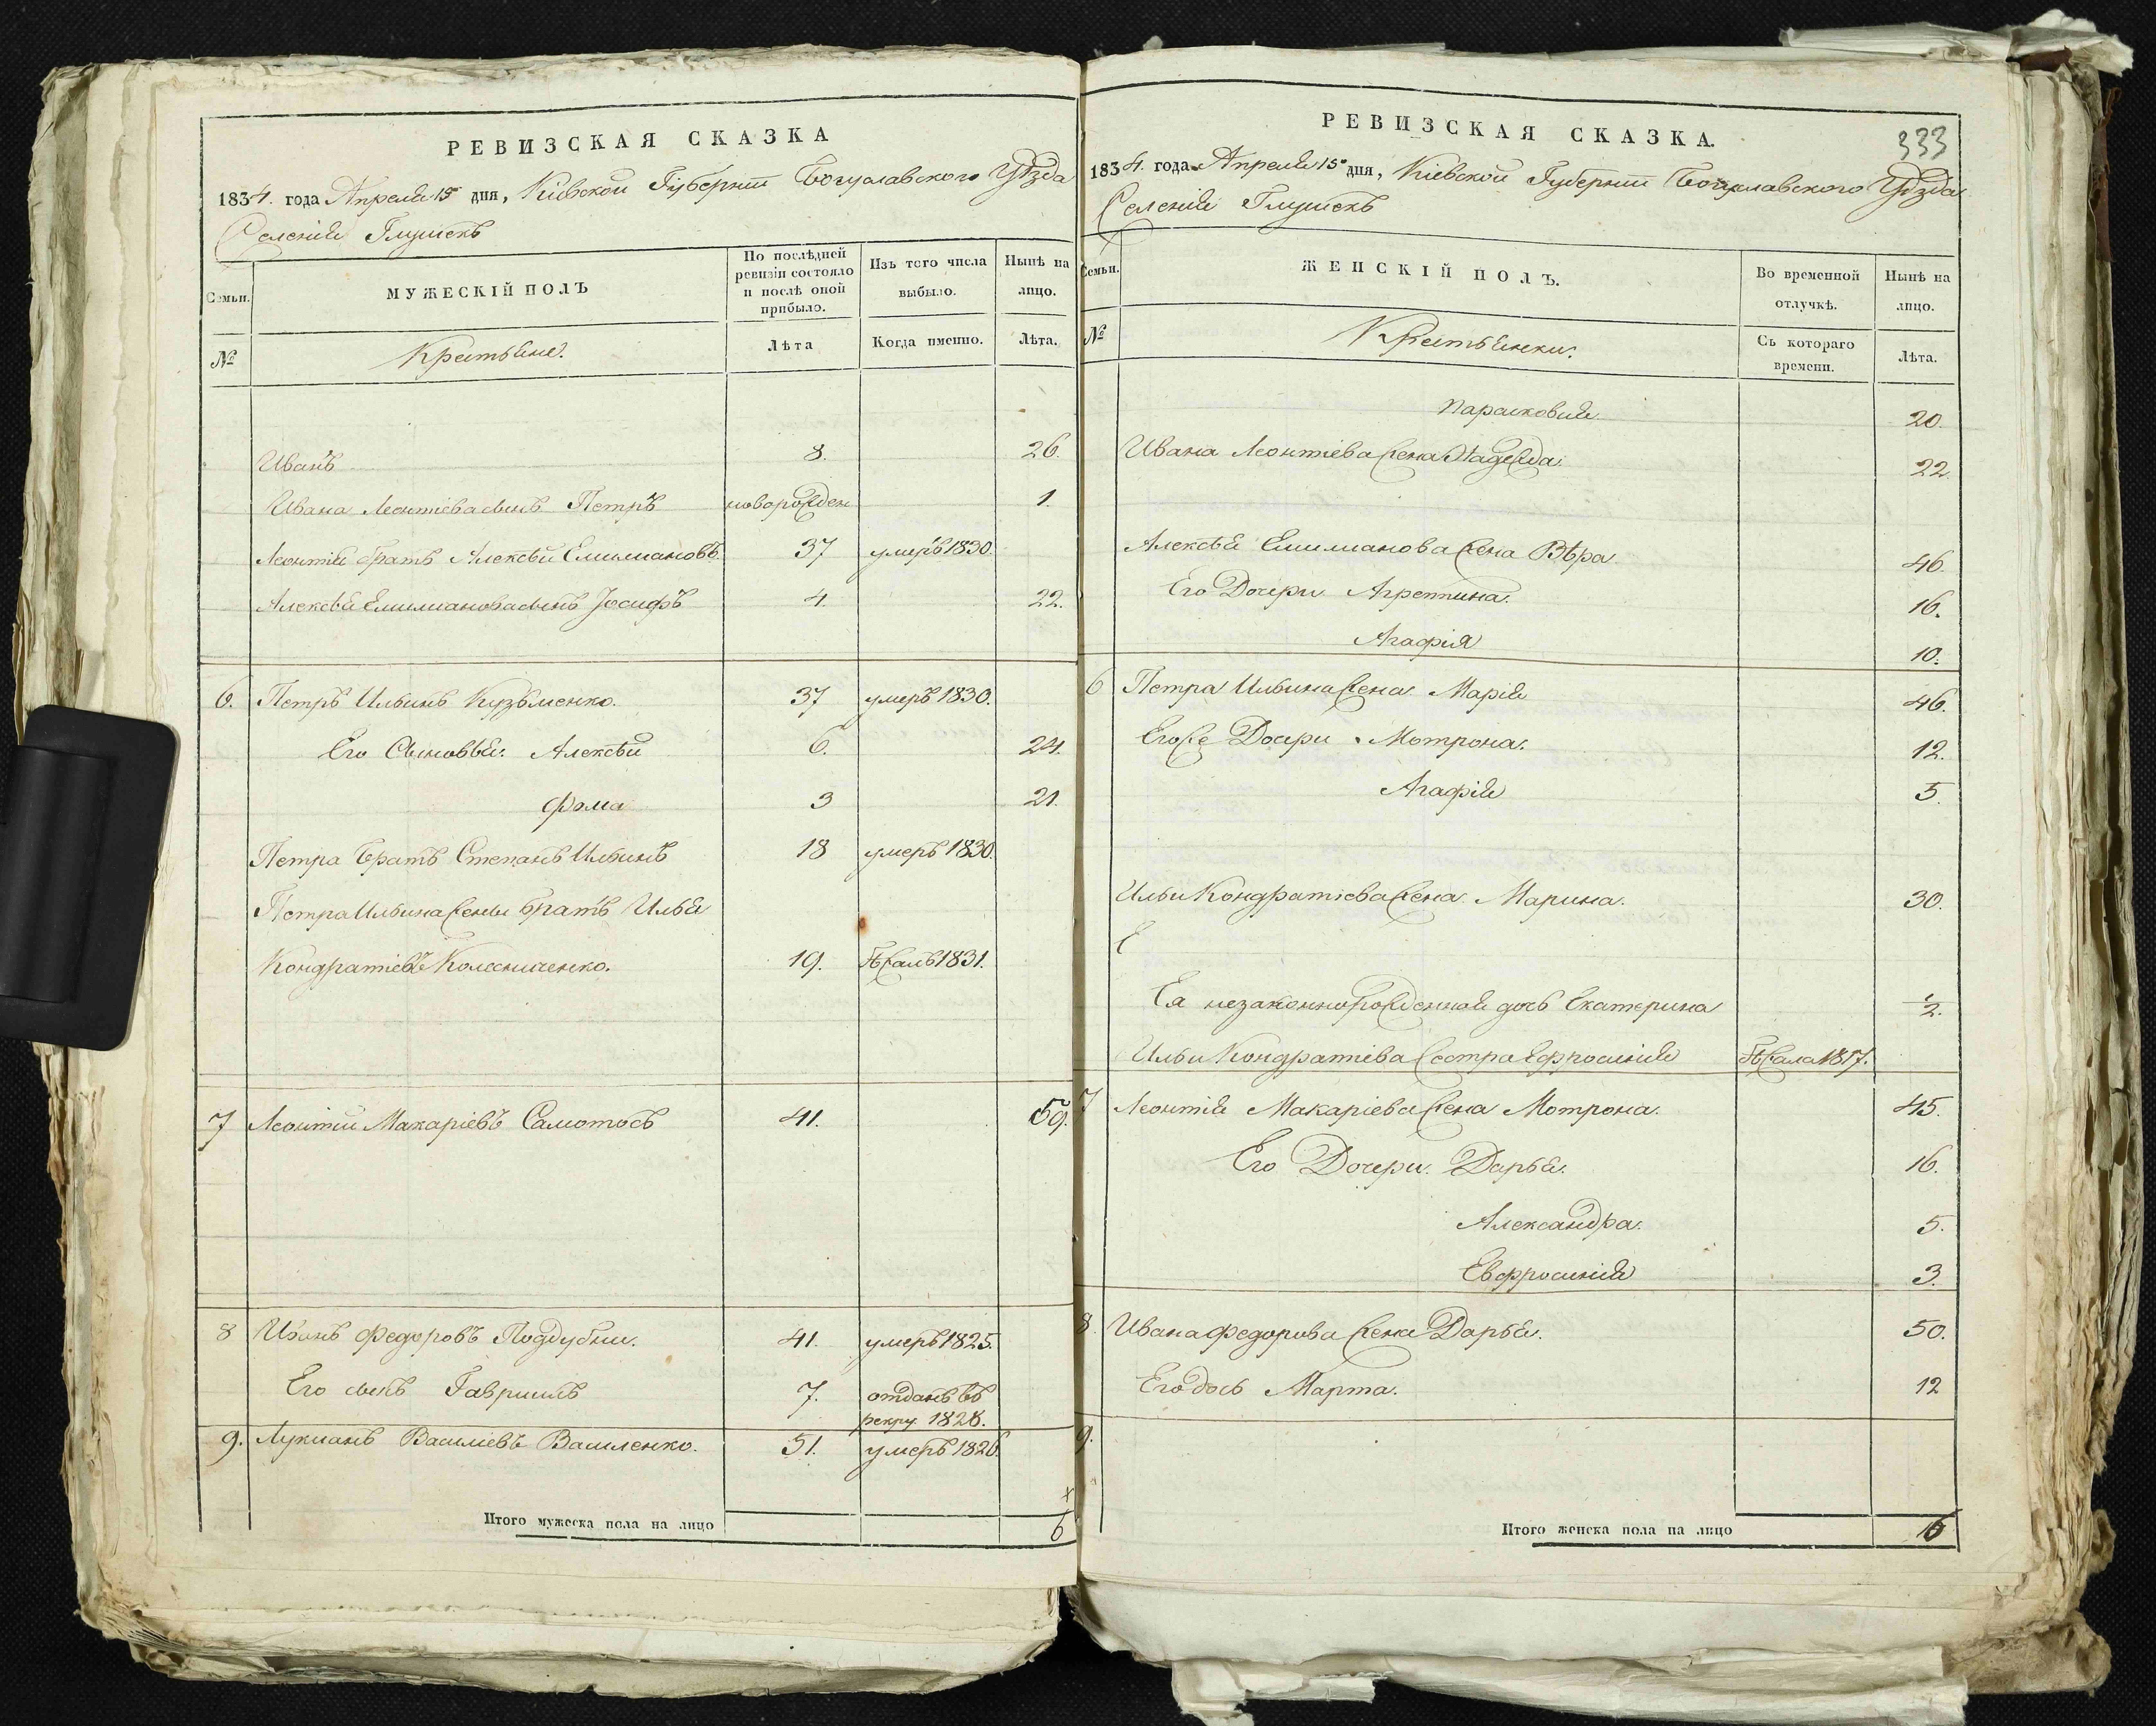 РЕВИЗСКАЯ СКАЗКА
1834. года Апреля 15 дня, Кіевской Губерніи Богуславского Уѣзда
Селенія Глушекъ
Семьи.
МУЖЕСКІЙ ПОЛЪ
По послѣдней ревизіи состояло и послѣ оной прибыло.
Изъ того числа выбыло.
Нынѣ на лицо.
№
Крестьяне.
Лѣта
Когда именно.
Лѣта.
Иванъ 8. 26.
Ивана Леонтіева сынъ Петръ новорожден 1.
Леонтія братъ Алексѣй Емилиановъ 37 умеръ 1830
Алексѣя Емилианова сынъ Іосифъ 4. 22.
6. Петръ Ильинъ Кузьменко. 37 умеръ 1830.
Его Сыновья: Алексѣй 6. 24.
Фома 3 21.
Петра Братъ Степанъ Ильинъ 18 умеръ 1830.
Петра Ильина жены братъ Илья
Кондратіевъ Колесниченко. 19. бѣжалъ 1831.
7 Леонтій Макаріевъ Самотосъ 41. 59.
8 Иванъ Федоровъ Поддубни. 41. умеръ 1825.
Его сынъ Гавриилъ 7. отданъ въ
рекру. 1828.
9. Лукианъ Василіевъ Василенко. 51. умеръ 1826.
х
Итого мужеска пола на лицо 6
РЕВИЗСКАЯ СКАЗКА.
333
1834. года Апреля 15 дня, Кіевской Губерніи Богуславского Уѣзда
Селенія Глушекъ
Семьи.
ЖЕНСКІЙ ПОЛЪ.
Во временной отлучкѣ.
Нынѣ на лицо.
№
Крестьянки.
Съ котораго времени.
Лѣта.
Парасковия 20.
Ивана Леонтіева жена Надежда. 22.
Алексѣя Емилианова жена Вѣра 46.
Его Дочери Агреппина. 16.
Агафія 10.
6 Петра Ильина жена Марія 46.
Его же Дочери Мотрона. 12.
Агафія 5.
Ильи Кондратіева жена Марина. 30.
Е
Ея незаконнорожденная дочь Екатерина ½.
Ильи Кондратіева Сестра Ефросинія бѣжала 1817.
7 Леонтія Макаріева жена Мотрона. 45.
Его Дочери. Дарья. 16.
Александра. 5.
Евфросинія 3.
8. Ивана Федорова жена Дарья. 50.
Его дочь Марта. 12
9.
Итого женска пола на лицо 16